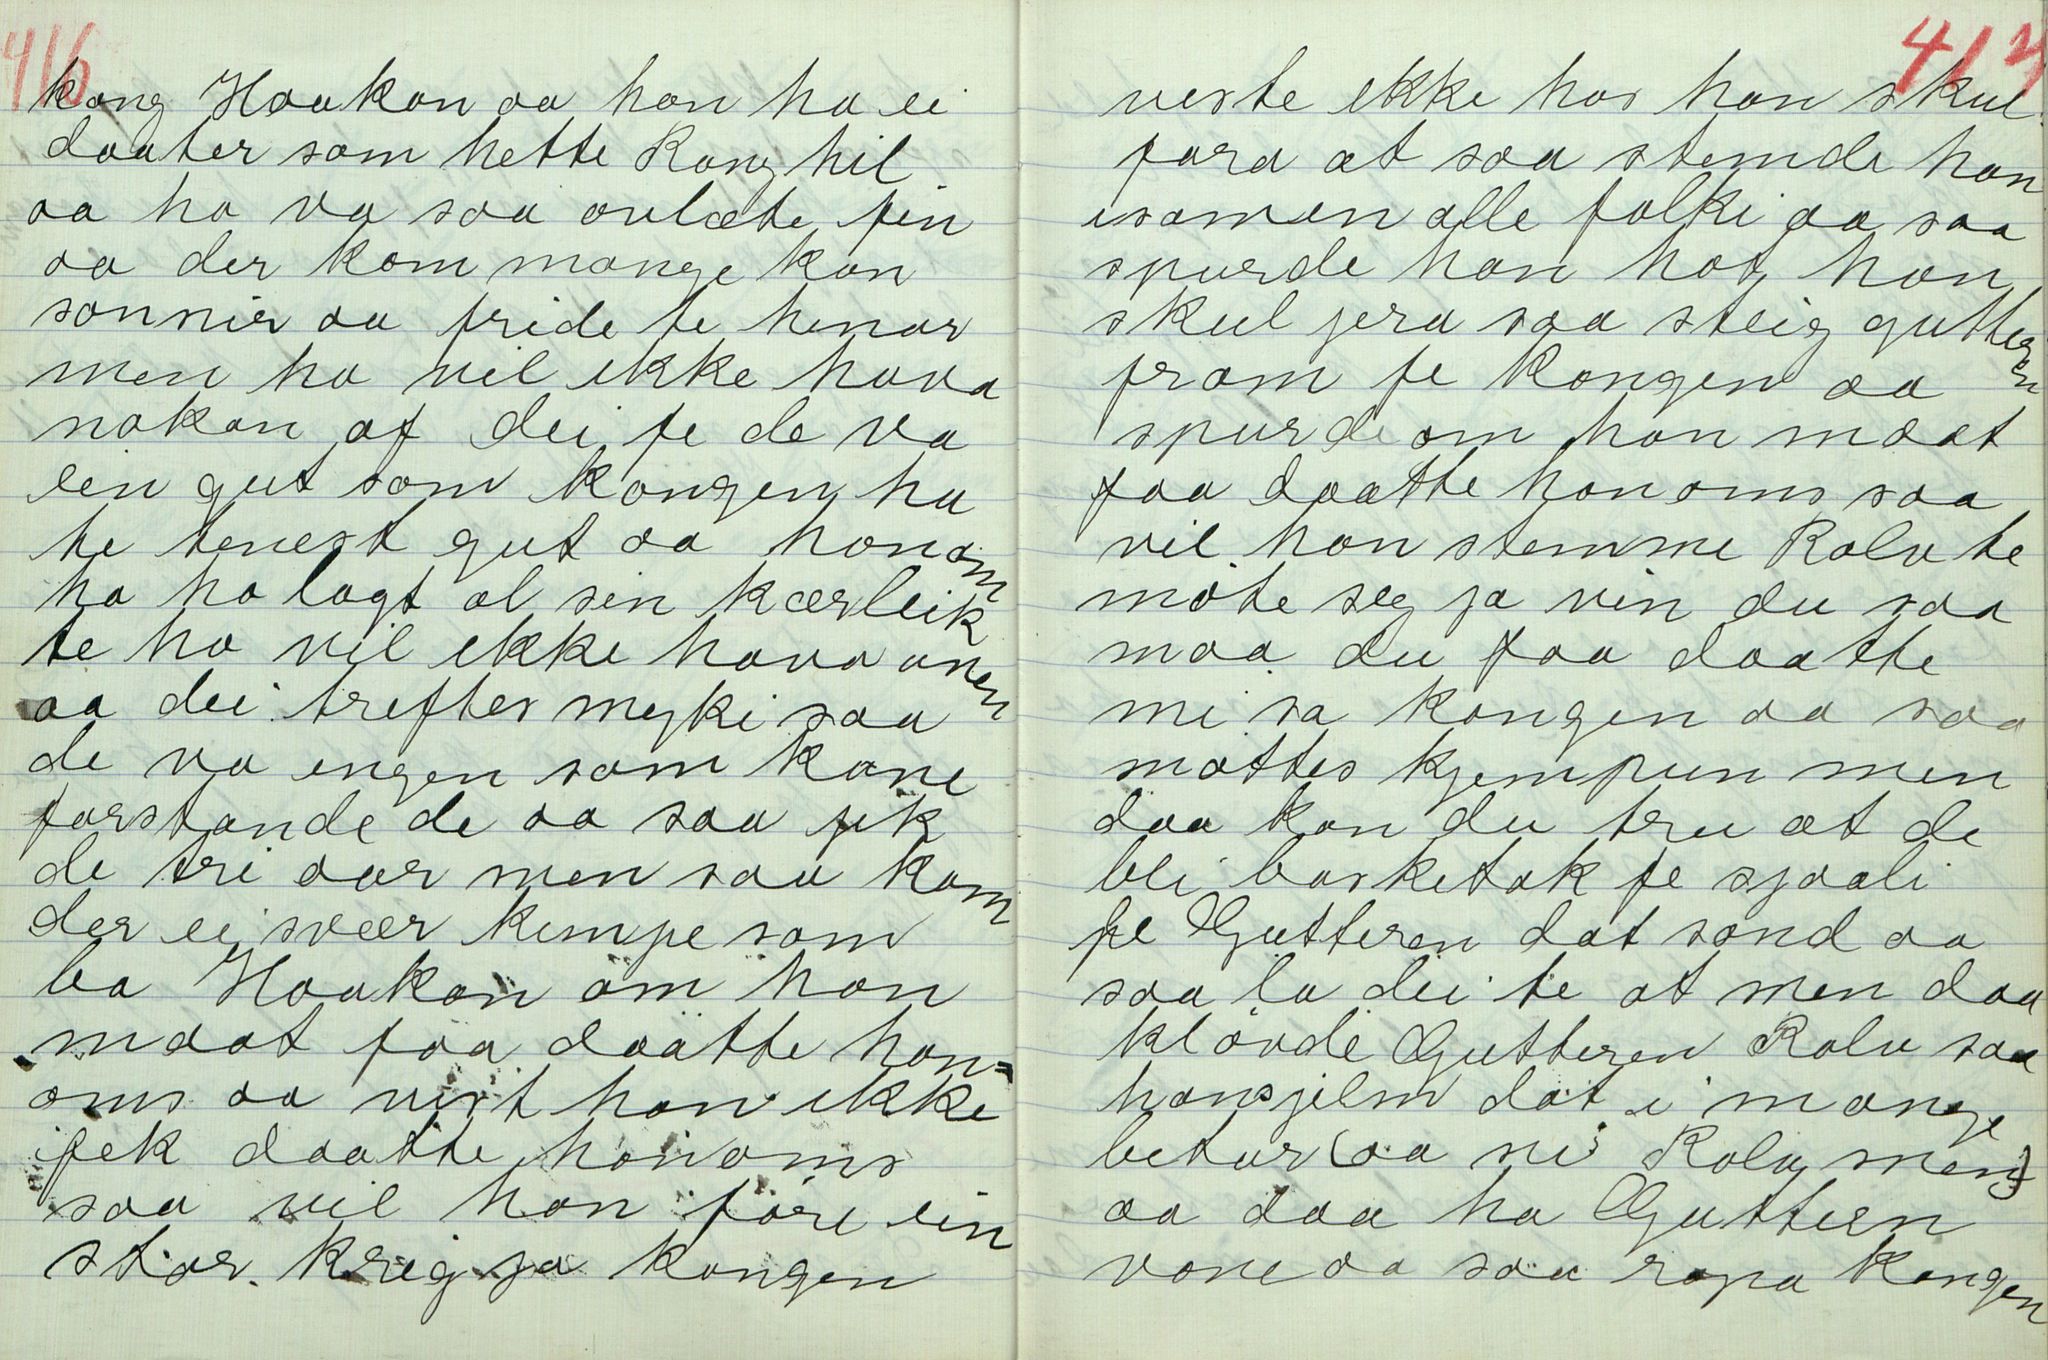 416
kong Haakon aa han ha ei
daater som hette Rang hil
aa ho va saa ovlæte fin
aa der kom mange kon
sonnir aa fride te henar
men ho vil ikke hava
nokon af dei fe de va
ein gut som kongen ha
te tenest gut aa honom
ha ho lagt al sin kærleik
te ho vil ikke hava anen
aa dei treftes myki saa
de va engen som kane
forstande de aa saa fik
de tri aar men saa kom
der ei svær kempe som
ba Haakon om han
maat faa daatte hon=
oms aa vist han ikke
fek daatte honoms
saa vil han före ein
stor krig ja kongen
417
veste ikke hos han skul
fara at saa stemde han
isamen alle folki aa saa
spurde han hot han
skul jera saa steig gutteren
fram fe kongen aa
spurde om han maat
faa daatte honoms saa
vil han stemme Rolv te
möte seg ja vin du saa
maa du faa daatte
mi sa kongen aa saa
möttes kjempun men
daa kan du tru at de
blei basketak fe sjaali
fe Gutteren dat sond aa
saa la dei te at men daa
klövde Gutteren Rolv saa
hansjelm dat i mange
betar (aa ni Rolv men)
aa daa ha Guttern
vone aa saa ropa kongen